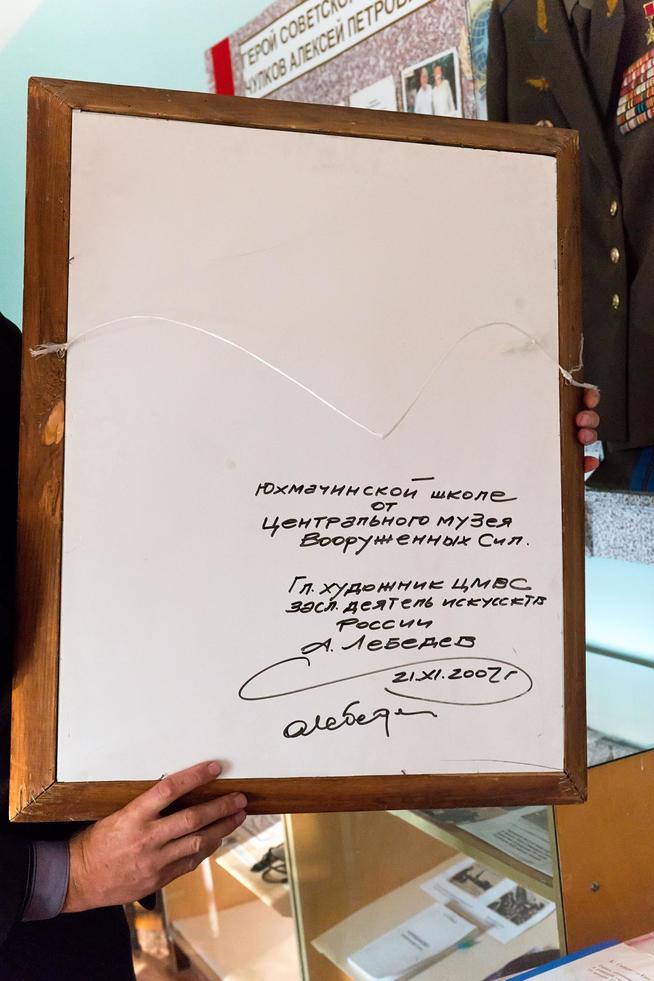 ГЕРОЙ СОВЕТСКО
ЧУЛКОВ АЛЕКСЕЙ ПЕТРОВ
Юхмачинской школе
от
Центрального музея
Вооруженных Сил.
Гл. художник ЦМВС
засл. деятель искусств
России
А. Лебедев
21.XI.2007г